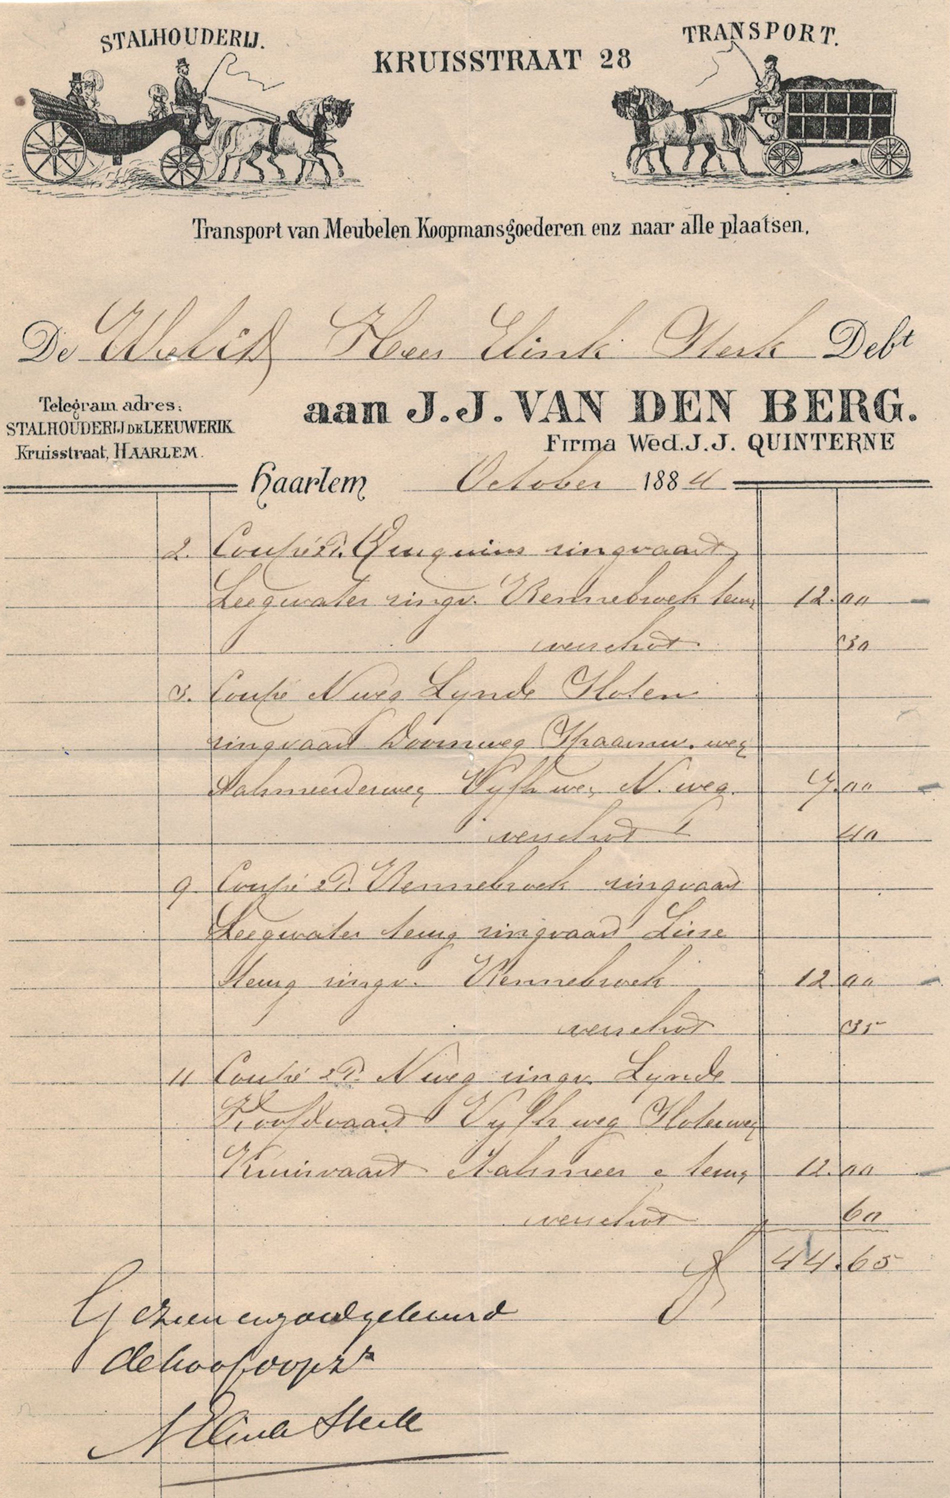 STALHOUDERIJ.
KRUISSTRAAT 28
TRANSPORT.
Transport van Meubelen Koopmansgoederen enz naar alle plaatsen.
De WelEd Heer Elink Sterk Debt
Telegram adres:
STALHOUDERIJ DE LEEUWERIK
Kruisstraat, HAARLEM.
aan J. J. VAN DEN BERG.
Firma Wed. J. J. QUINTERNE
Haarlem October 1884
2. Coupé 2P. Cruquius ringvaart
Leegwater ringv. Bennebroek terug 12.00
verschot 30
3. Coupé N weg Lynde Sloten
ringvaart Spaarnw. weg
Aalsmeerderweg Vyfh weg N. weg. 7.00
verschot 40
9. Coupé 2P. Bennebroek ringvaart
Leegwater terug ringvaart Lisse
terug ringv. Bennebroek 12.00
verschot 35
11 Coupé 2P. N weg ringv. Lynde
Hoofdvaart Vyfh weg Sloterweg
Kruisvaart Aalsmeer & terug 12.00
verschot 60
ƒ 44.65
Gezien en goedgekeurd
de hoofdopzr
Elink Sterk